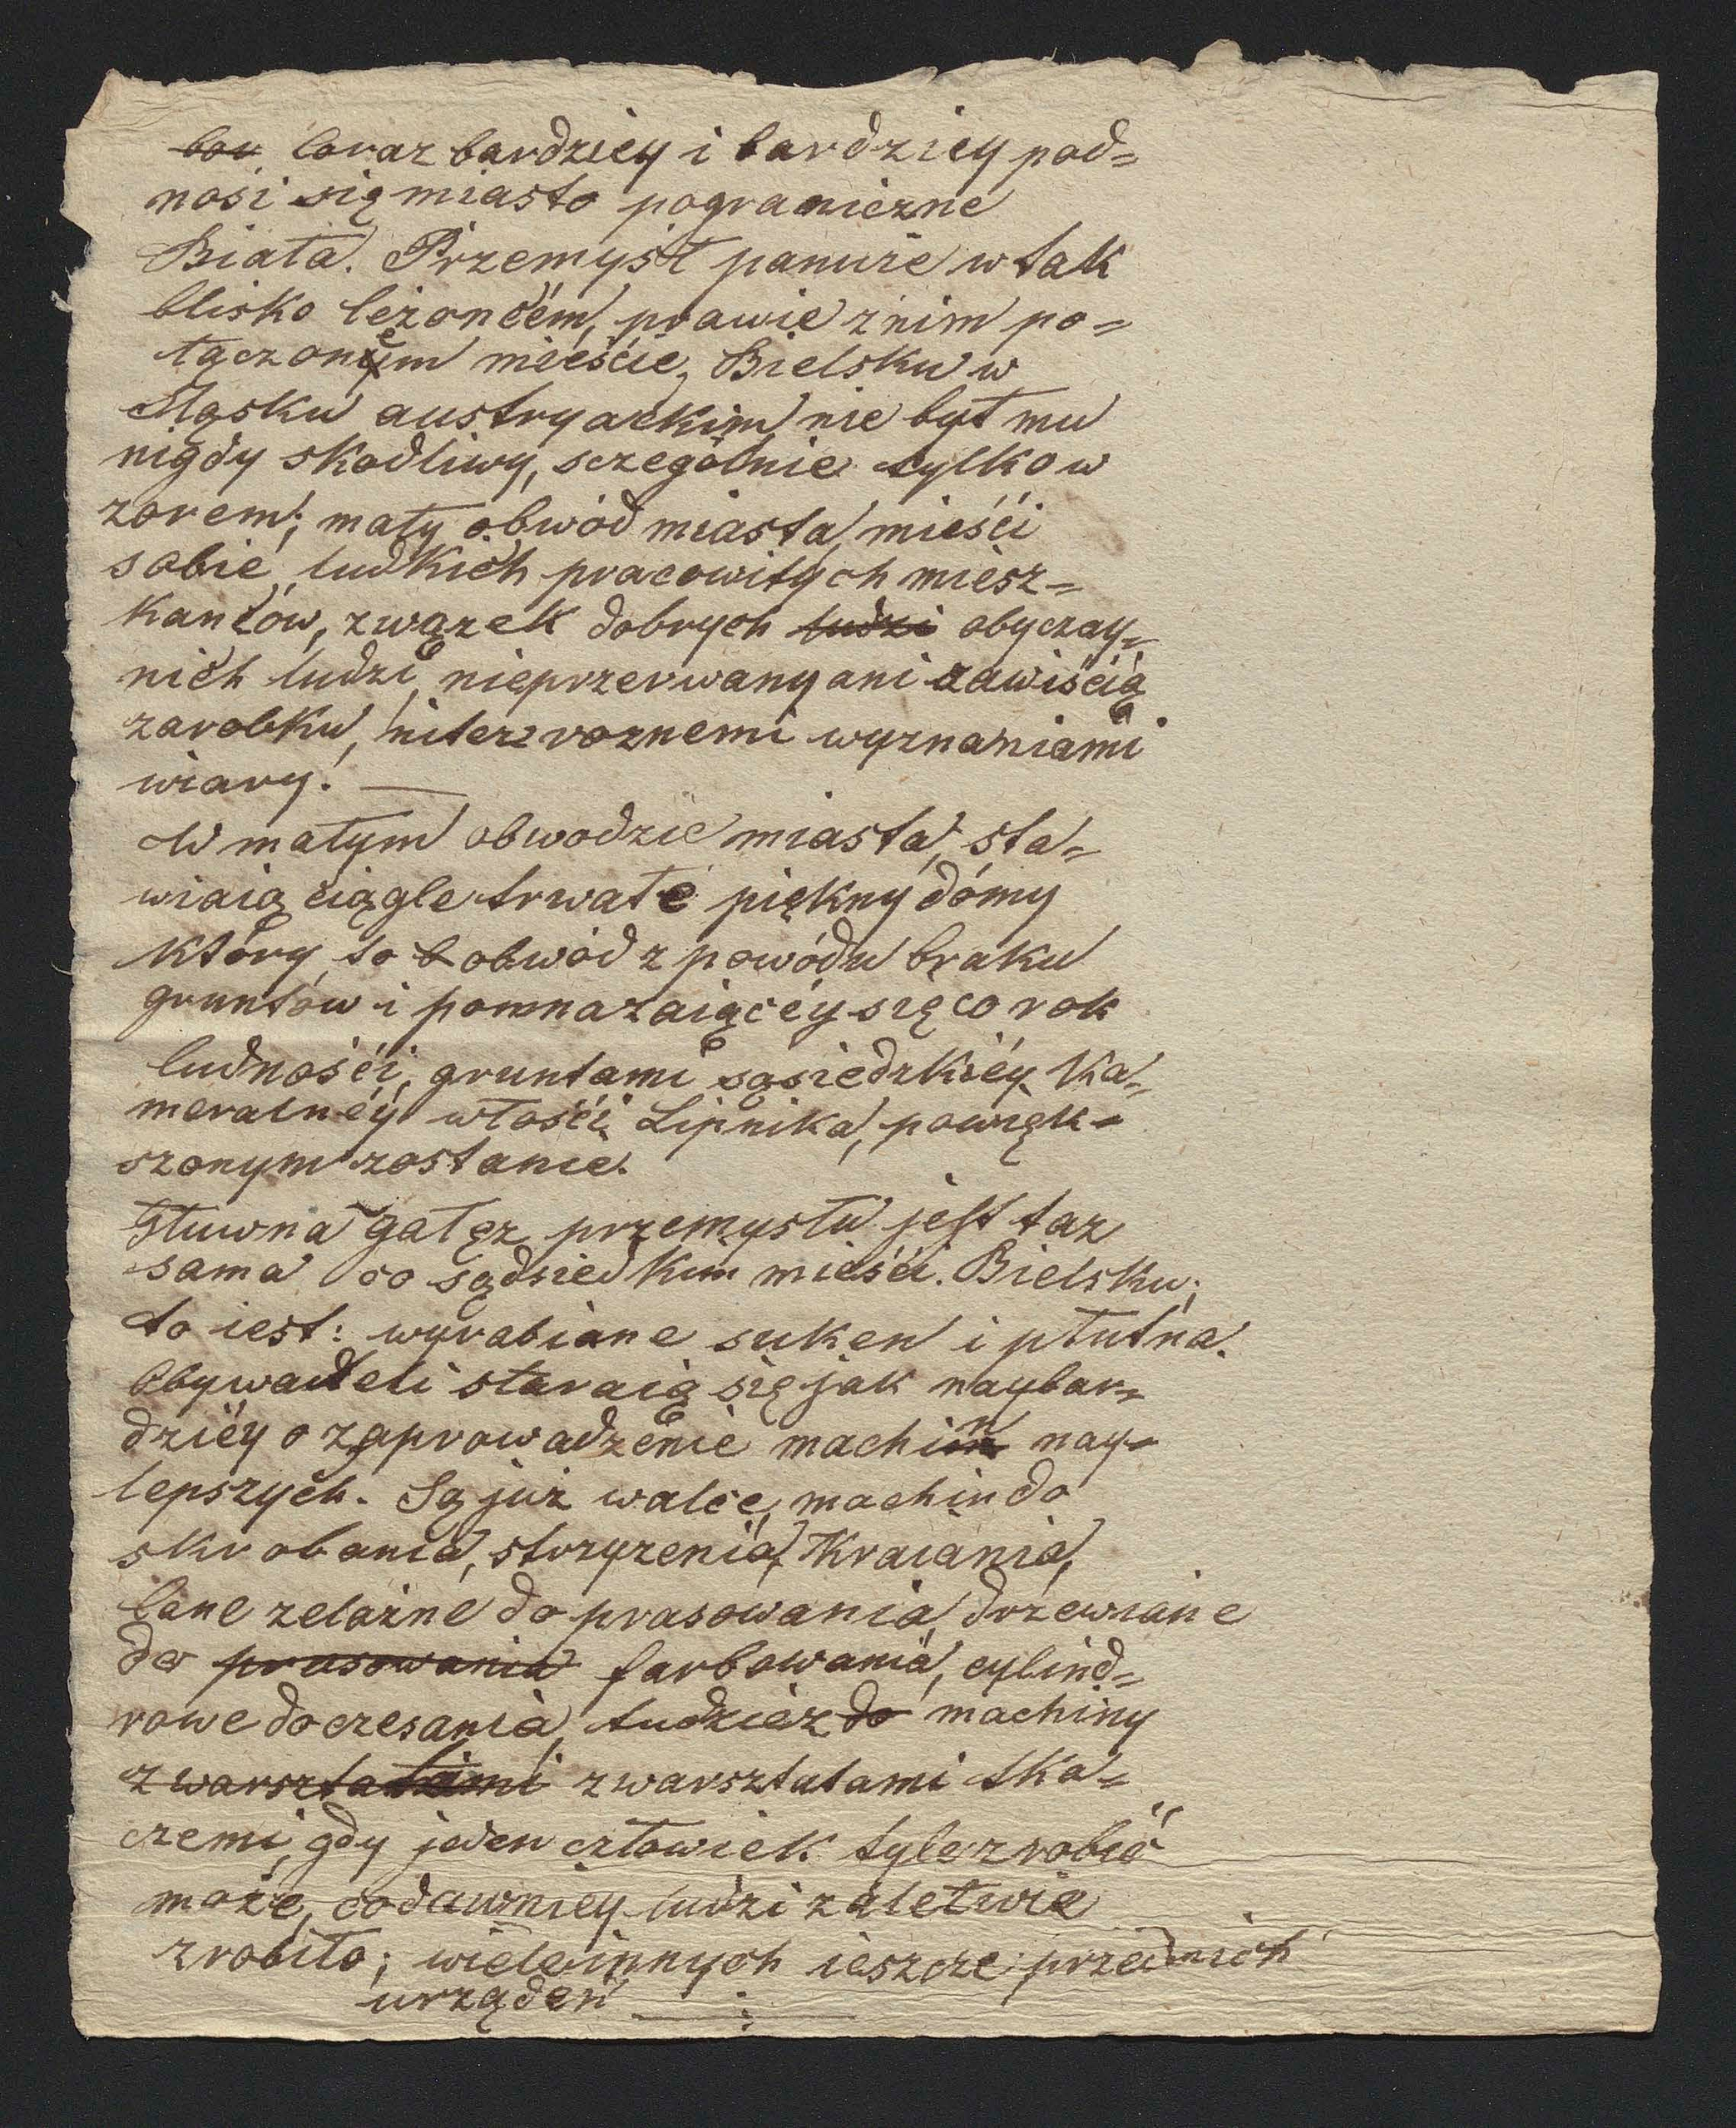 bou Coraz bardziey i bardziey pod=
nosi się miasto pograniczne
Biała. Przemysł panuie w tak
blisko leżoncém, prawie z nim po=
łączoném mieście, Bielsku w
Sląsku austryackim nie był mu
nigdy skodliwy, sczególnie tylko w
zorem; mały obwód miasta, mieśći
sobie ludkich pracowitych miesz=
kanców, zwązek dobrych ludzi obyczay=
nich ludzi, nieprzerwany ani zawiścią
zarobku, niter roznemi wyznaniami
wiary! —
W małym obwodzie miasta, sta=
wiaią ciągle trwałe piękny dómy
który, to b obwód z powódu braku
gruntów i pomnazaiącéy się co rok
ludnośći, gruntami sąsiedzkiéy Ka=
meralnéy włośći Lipnika, powięk=
szonym zostanie.
Głuwna gałęz przemysłu jest taz
sama co sądsiedkim mieśći. Bielsku;
to iest: wyrabiane suken i płutna.
Obywateli staraią się jak naybar=
dziéy o zaprowadzenie machin nay=
lepszych. Są już walce, machin do
skrobania, strzyzenia, Kraiania,
lane zelazne do prasowania, drzewiane
do prasowania farbowania, cylind=
rowe do czesania, tudzież do machiny
z warsztatami z warsztatami tka=
czemi, gdy jeden człowiek tyle zrobić
może, co dawniey ludzi zaletwie
zrobiło; wiele innych ieszcze przednich
urządzeń —:—